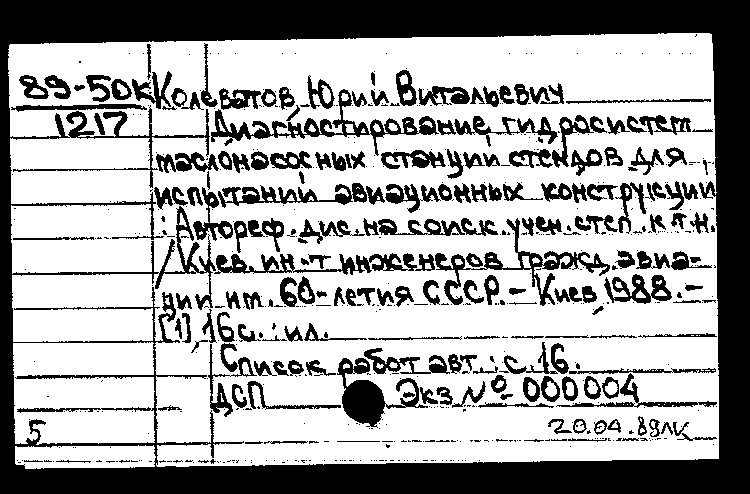 89-50К
1217
Колеватов, Юрий Витальевич
Диагностирование гидросистем
маслонасосных станции стендов для
испытаний авиационных конструкции
: Автореф. дис. на соиск. учен. степ. к.т.н.
/ Киев. ин-т инженеров гражд. авиа-
ции им. 60-летия СССР. - Киев, 1988. -
[1], 16 с. : ил.
Список работ авт.: с. 16.
ДСП Экз № 000004
5 20.04.89лк